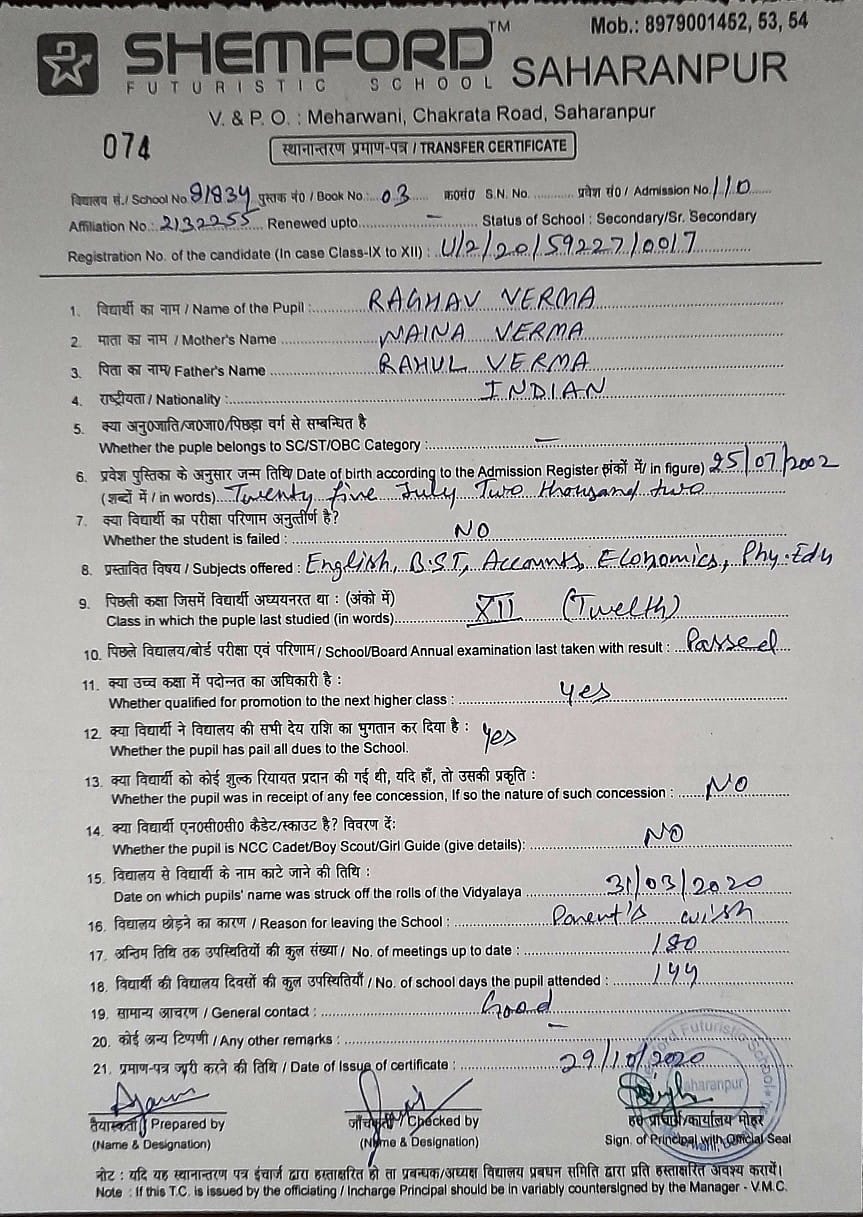 Mob.: 8979001452, 53, 54
SHEMFORD™
FUTURISTIC SCHOOL SAHARANPUR
V. & P. O. : Meharwani, Chakrata Road, Saharanpur
074
स्थानान्तरण प्रमाण-पत्र / TRANSFER CERTIFICATE
विद्यालय सं./ School No. 81834 पुस्तक नं0 / Book No.: 03 क्र0सं0 S.N. No. ........... प्रवेश सं0 / Admission No. 110
Affiliation No.: 2132255 Renewed upto.............. – Status of School : Secondary/Sr. Secondary
Registration No. of the candidate (In case Class-IX to XII) : U/2/20/59227/0017
1. विद्यार्थी का नाम / Name of the Pupil : RAGHAV VERMA
2. माता का नाम / Mother's Name NAINA VERMA
3. पिता का नाम/ Father's Name RAHUL VERMA
4. राष्ट्रीयता / Nationality : INDIAN
5. क्या अनु0जाति/ज0जा0/पिछड़ा वर्ग से सम्बन्धित है
Whether the puple belongs to SC/ST/OBC Category : —
6. प्रवेश पुस्तिका के अनुसार जन्म तिथि/ Date of birth according to the Admission Register (अंकों में/ in figure) 25/07/2002
(शब्दों में / in words) Twenty five July Two thousand two
7. क्या विद्यार्थी का परीक्षा परिणाम अनुत्तीर्ण है?
Whether the student is failed : NO
8. प्रस्तावित विषय / Subjects offered : English, B.ST, Accounts, Economics, Phy.Edu
9. पिछली कक्षा जिसमें विद्यार्थी अध्ययनरत था : (अंको में)
Class in which the puple last studied (in words) XII (Twelth)
10. पिछले विद्यालय/बोर्ड परीक्षा एवं परिणाम / School/Board Annual examination last taken with result : Passed
11. क्या उच्च कक्षा में पदोन्नत का अधिकारी है :
Whether qualified for promotion to the next higher class : yes
12. क्या विद्यार्थी ने विद्यालय की सभी देय राशि का भुगतान कर दिया है : yes
Whether the pupil has pail all dues to the School.
13. क्या विद्यार्थी को कोई शुल्क रियायत प्रदान की गई थी, यदि हाँ, तो उसकी प्रकृति :
Whether the pupil was in receipt of any fee concession, If so the nature of such concession : NO
14. क्या विद्यार्थी एन0सी0सी0 कैडेट/स्काउट है? विवरण दें:
Whether the pupil is NCC Cadet/Boy Scout/Girl Guide (give details): NO
15. विद्यालय से विद्यार्थी के नाम काटे जाने की तिथि :
Date on which pupils' name was struck off the rolls of the Vidyalaya 31/03/2020
16. विद्यालय छोड़ने का कारण / Reason for leaving the School : Parent's wish
17. अन्तिम तिथि तक उपस्थितियों की कुल संख्या / No. of meetings up to date : 180
18. विद्यार्थी की विद्यालय दिवसों की कुल उपस्थितियाँ / No. of school days the pupil attended : 144
19. सामान्य आचरण / General contact : Good
20. कोई अन्य टिप्पणी / Any other remarks : –
21. प्रमाण-पत्र जारी करने की तिथि / Date of Issue of certificate : 29/10/2020
Futuristic School
Saharanpur
तैयारकर्ता / Prepared by
(Name & Designation)
जाँचकर्ता / Checked by
(Name & Designation)
ह0 प्राचार्य/कार्यालय मोहर
Sign. of Principal with Official Seal
नोट : यदि यह स्थानान्तरण पत्र इंचार्ज द्वारा हस्ताक्षरित हो ता प्रबन्धक/अध्यक्ष विद्यालय प्रबधन समिति द्वारा प्रति हस्ताक्षरित अवश्य करायें।
Note : If this T.C. is issued by the officiating / Incharge Principal should be in variably countersigned by the Manager - V.M.C.